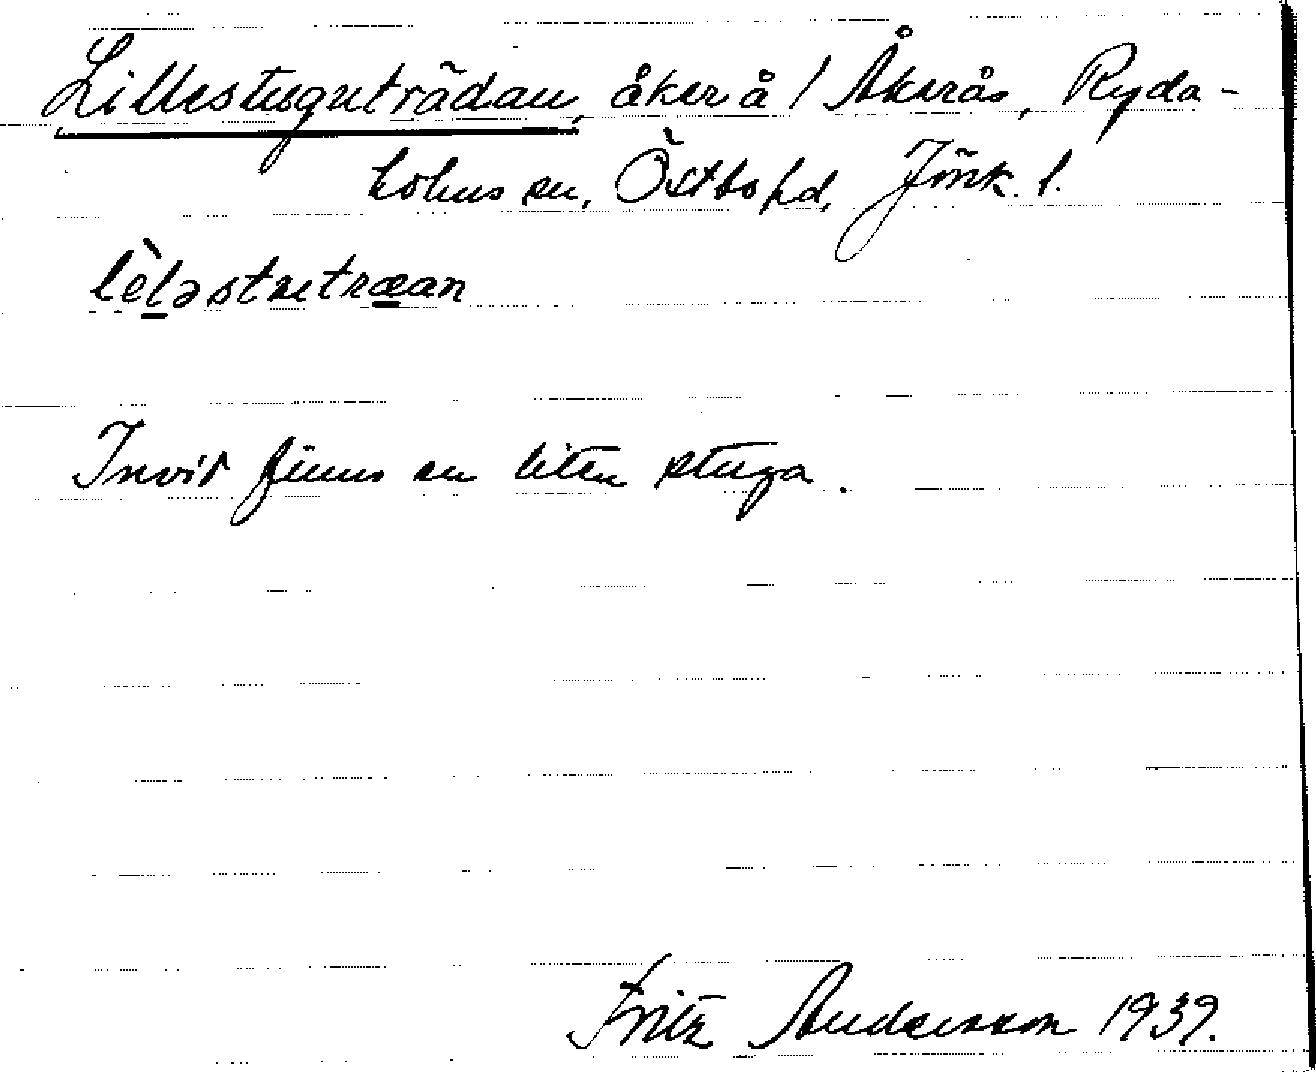 Lillestuguträdan, åker å / Åkerås, Ryda-
holms sn, Östbo hd, Jönk. l.
lèləstutræan
Invid finns en liten stuga.
Fritz Andersson 1939.